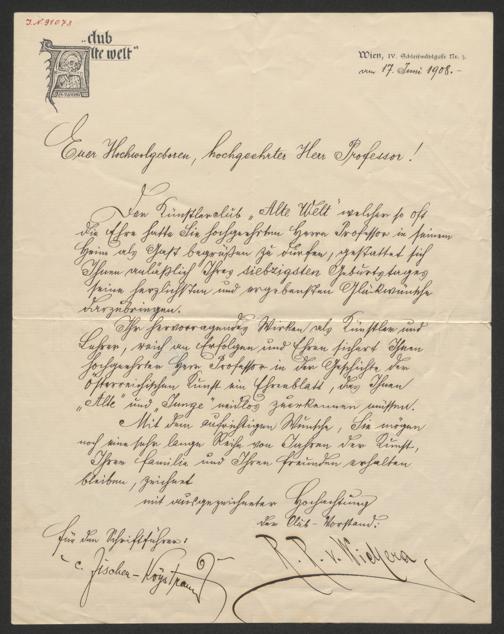 J.N 98073
„Club
Alte Welt“
Wien, IV. Schleifmühlgasse Nr. 3.
am 17. Juni 1908.-
Euer Hochwolgeboren, hochgeehrter Herr Professor!
Der Künstlerclub „Alte Welt“ welcher so oft
die Ehre hatte Sie hochgeehrten Herrn Professor in seinem
Heim als Gast begrüßen zu dürfen, gestattet sich
Ihnen anläßlich Ihres siebzigsten Geburtstages
seine herzlichsten und ergebensten Glückwünsche
darzubringen.
Ihr hervorragendes Wirken als Künstler und
Lehrer, reich an Erfolgen und Ehren sichert Ihnen
hochgeehrten Herr Professor in der Geschichte der
österreichischen Kunst ein Ehrenblatt, das Ihnen
„Alte“ und „Junge“ neidlos zuerkennen müssen.
Mit dem aufrichtigen Wunsche, Sie mögen
noch eine sehr lange Reihe von Jahren der Kunst,
Ihrer Familie und Ihren Freunden erhalten
bleiben, zeichnet
mit ausgezeichneter Hochachtung
der Club-Vorstand:
für den Schriftführer:
C. Fischer-
R. R. v.